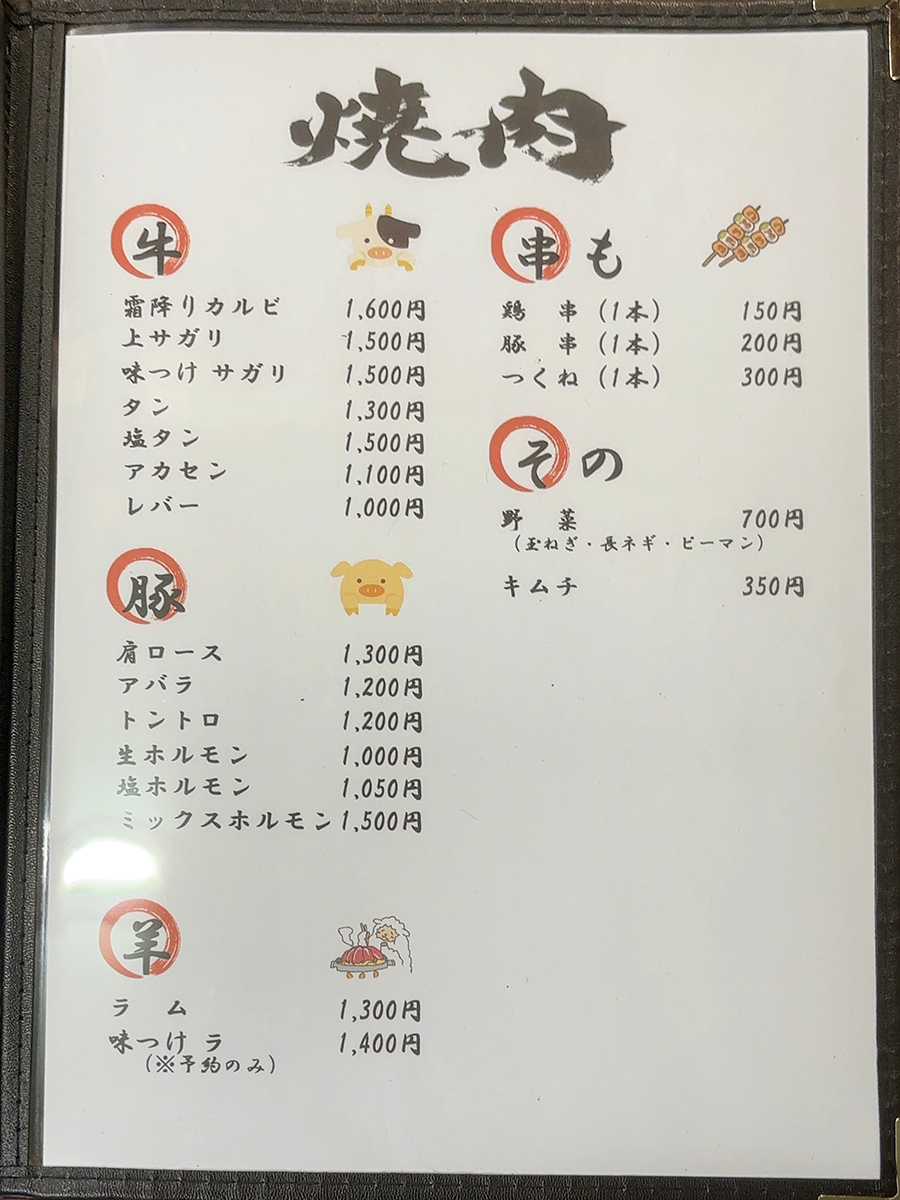 焼肉
牛
霜降りカルビ 1,600円
上サガリ 1,500円
味つけ サガリ 1,500円
タン 1,300円
塩タン 1,500円
アカセン 1,100円
レバー 1,000円
豚
肩ロース 1,300円
アバラ 1,200円
トントロ 1,200円
生ホルモン 1,000円
塩ホルモン 1,050円
ミックスホルモン 1,500円
羊
ラ ム 1,300円
味つけ ラ 1,400円
(※予約のみ)
串も
鶏 串 (1本) 150円
豚 串 (1本) 200円
つくね (1本) 300円
その
野 菜 700円
(玉ねぎ・長ネギ・ピーマン)
キムチ 350円